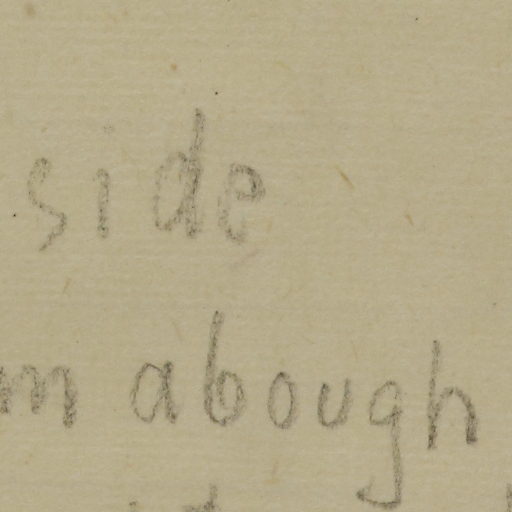 side
m abough